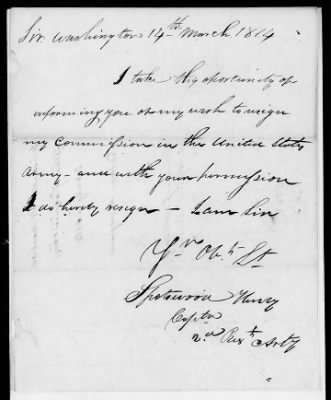 Sir Washington 14th March 1814
I take this oportunity of
informing you of my wish to resign
my Commission in the United States
Army - and with your permission
I do hereby resign - I am Sir
Yr. Obt. St
Spotswood Henry
Captn
2nd Regt Arty